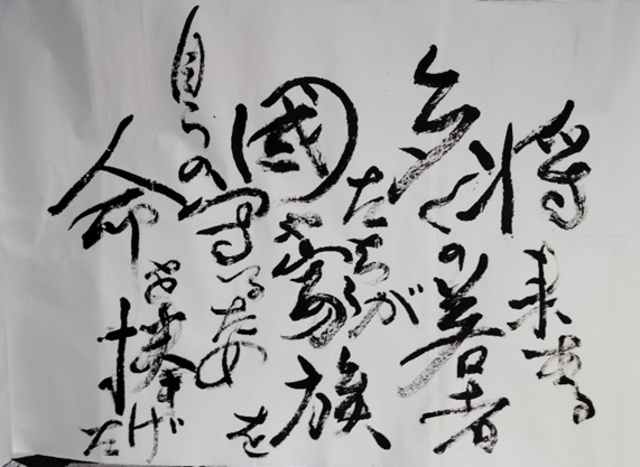 将来ある
多くの若者
たちが
國や家族を
守る為
自らの
命を捧げ
た